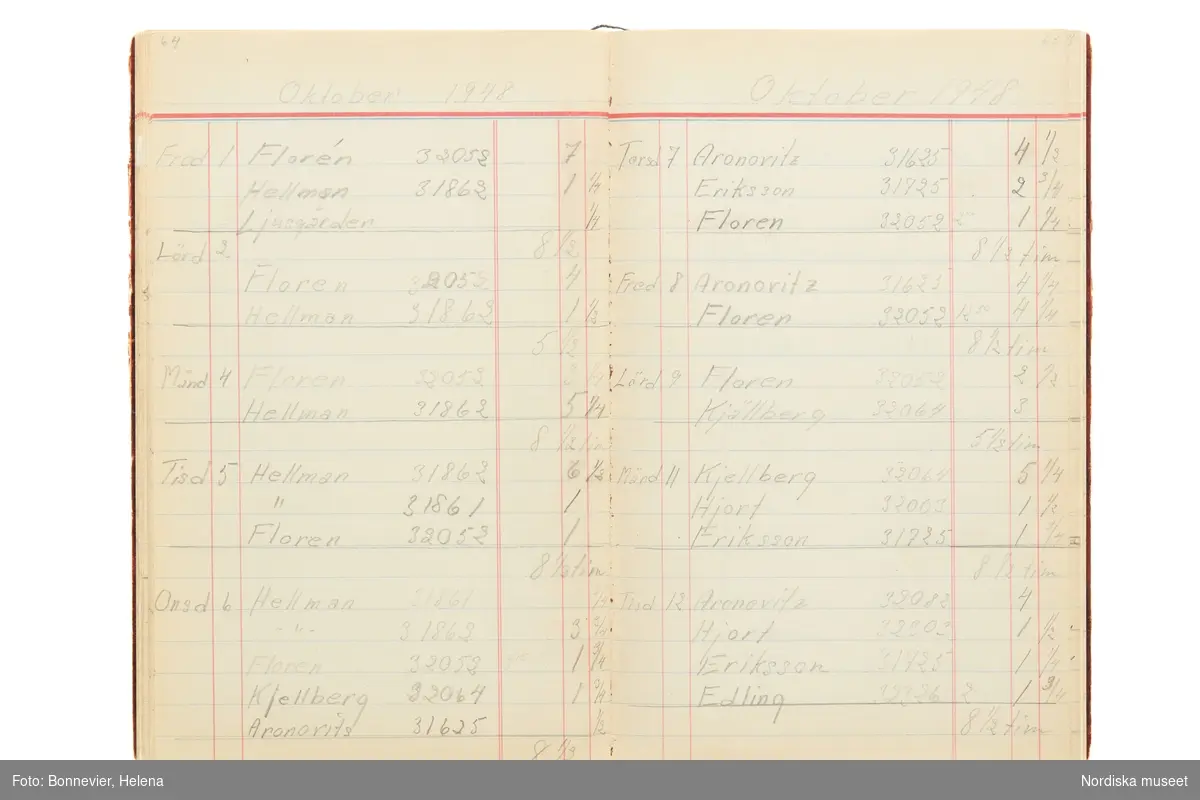 64
Oktober 1948
Fred 1 Florén 32052 7
Hellman 31862 1 1/4
Ljusgården 1/4
8 1/2
Lörd 2
Floren 32052 4
Hellman 31862 1 1/2
5 1/2
Månd 4 Floren 32052 3 1/4
Hellman 31862 5 1/4
8 1/2 tim
Tisd 5 Hellman 31862 6 1/2
" 31861 1
Floren 32052 1
8 1/2 tim
Onsd 6 Hellman 31861 1/2
-"- 31862 3 3/4
Floren 32052 1 3/4
Kjellberg 32064 1 3/4
Aronovits 31625 1/2
8 1/2
Oktober 1948
Torsd 7 Aronovitz 31625 4 1/2
Eriksson 31725 2 3/4
Floren 32052 1 1/4
8 1/2 tim
Fred 8 Aronovitz 31625 4 1/4
Floren 32052 4 1/4
8 1/2 tim
Lörd 9 Floren 32052 2 1/2
Kjällberg 32064 3
5 1/2 tim
Månd 11 Kjellberg 32064 5 1/4
Hjort 32003 1 1/2
Eriksson 31725 1 3/4
8 1/2 tim
Tisd 12 Aronovitz 32082 4
Hjort 1 1/2
Eriksson 31725 1 1/4
Edling 1 3/4
8 1/2 tim
Foto: Bonnevier, Helena
Nordiska museet